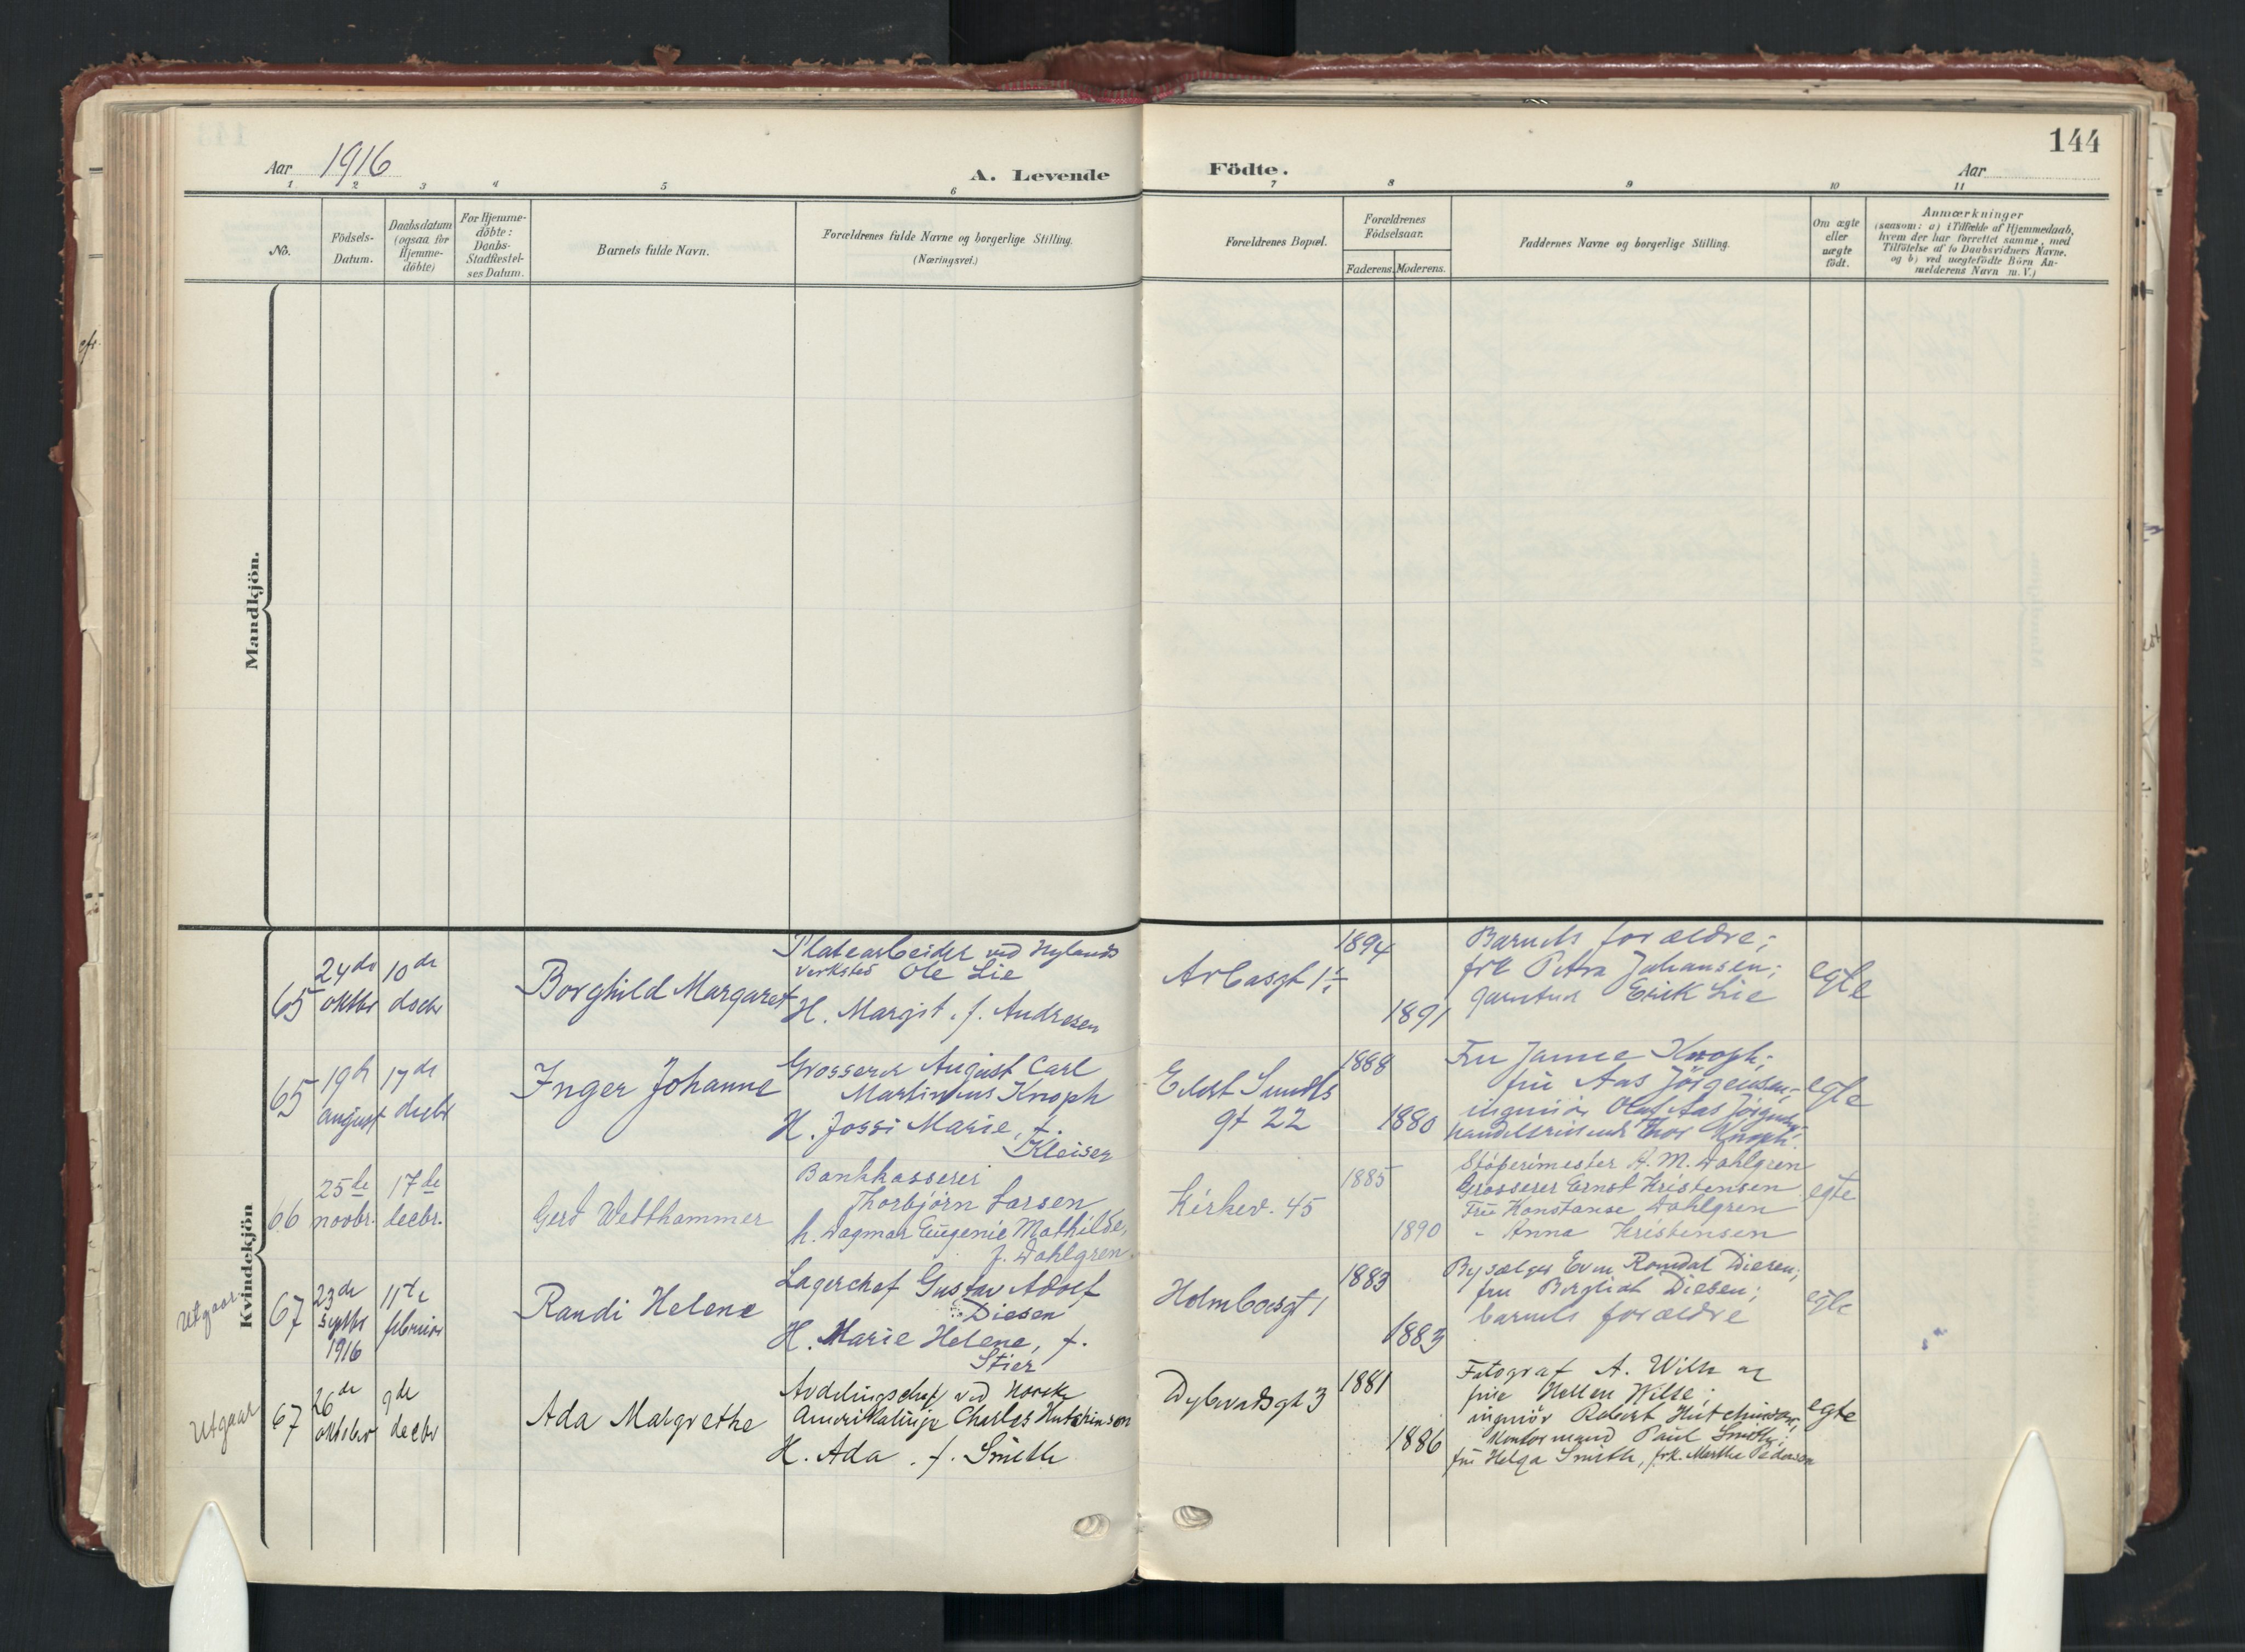 144
Aar 1916
A. Levende Födte.
Aar
1 2 3 4 5 6 7 8 9 10 11
No.
Födsels-
Datum.
Daabsdatum
(ogsaa for
Hjemme-
döbte)
For Hjemme-
döbte:
Daabs-
Stadfæstel-
ses Datum.
Barnets fulde Navn.
Forældrenes fulde Navne og borgerlige Stilling.
(Næringsvei.)
Forældrenes Bopæl.
Forældrenes
Födselsaar.
Faderens. Moderens.
Faddernes Navne og borgerlige Stilling.
Om ægte
eller
uægte
födt.
Anmærkninger
(saasom: a) i Tilfælde af Hjemmedaab,
hvem der har forrettet samme, med
Tilföielse af to Daabsvidners Navne.
og b) ved uægtefödte Börn An-
melderens Navn m. V.)
Mandkjön.
Kvindekjön
65
24de
oktbr
10de
decbr
Borghild Margaret
Platearbeider ved Nylands
verksted Ole Lie
H. Margit. f. Andresen
Arbosgt 1
1894
1891
Barnets forældre;
frk Petra Johansen;
Erik Lie
egte
65
19de
august
17de
decbr
Inger Johanne
Grosserer August Carl
Martinius Knoph
H. Jossi Marie, f.
Kleiser
Eilert Sundts
gt 22
1888
1880
Fru Janne Knoph;
fru Aas Jörgensen;
ingeniör Olaf Aas Jörgensen;
handelsreisende Thor Knoph.
egte
66
25de
novbr.
17de
decbr.
Gerd Wetlhammer
Bankkasserer
Thorbjörn Larsen
h. Dagmar Eugenie Mathilde,
f. Dahlgren
Kirkev. 45
1885
1890
Stöperimester A. M. Dahlgren
Grosserer Ernst Kristensen
Fru Konstanse Dahlgren
- Anna Kristensen
egte
Utgaar
67
23de
septbr
1916
11te
februar
Randi Helene
Lagerchef Gustav Adolf
Diesen
H. Marie Helene, f.
Stier
Holmboesgt 1
1883
1883
Bysælger Romdal Diesen;
fru Bergliot Diesen;
barnets forældre
egte
Utgaar
67
26de
oktober
9de
decbr
Ada Margrethe
Avdelingschef ved Norske
Amerikalinje Charles Hutchinson
H. Ada. f. Smith
Dybwadsgt 3
1881
1886
Fotograf A. Wilse og
frue Hellen Wilse;
ingeniör Robert Hutchinson;
Kontormand Paul Smith;
fru Helga Smith, frk. Marthe Pedersen
egte